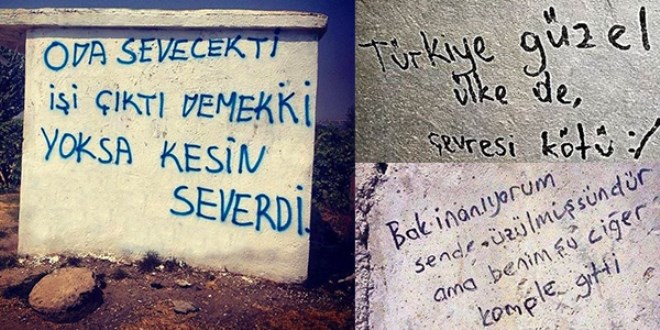 ODA SEVECEKTİ
İŞİ ÇIKTI DEMEKKİ
YOKSA KESİN
SEVERDİ.
Türkiye güzel
ülke de,
çevresi kötü :/
Bak inanıyorum
sende üzülmüşsündür
ama benim şu ciğer
komple gitti